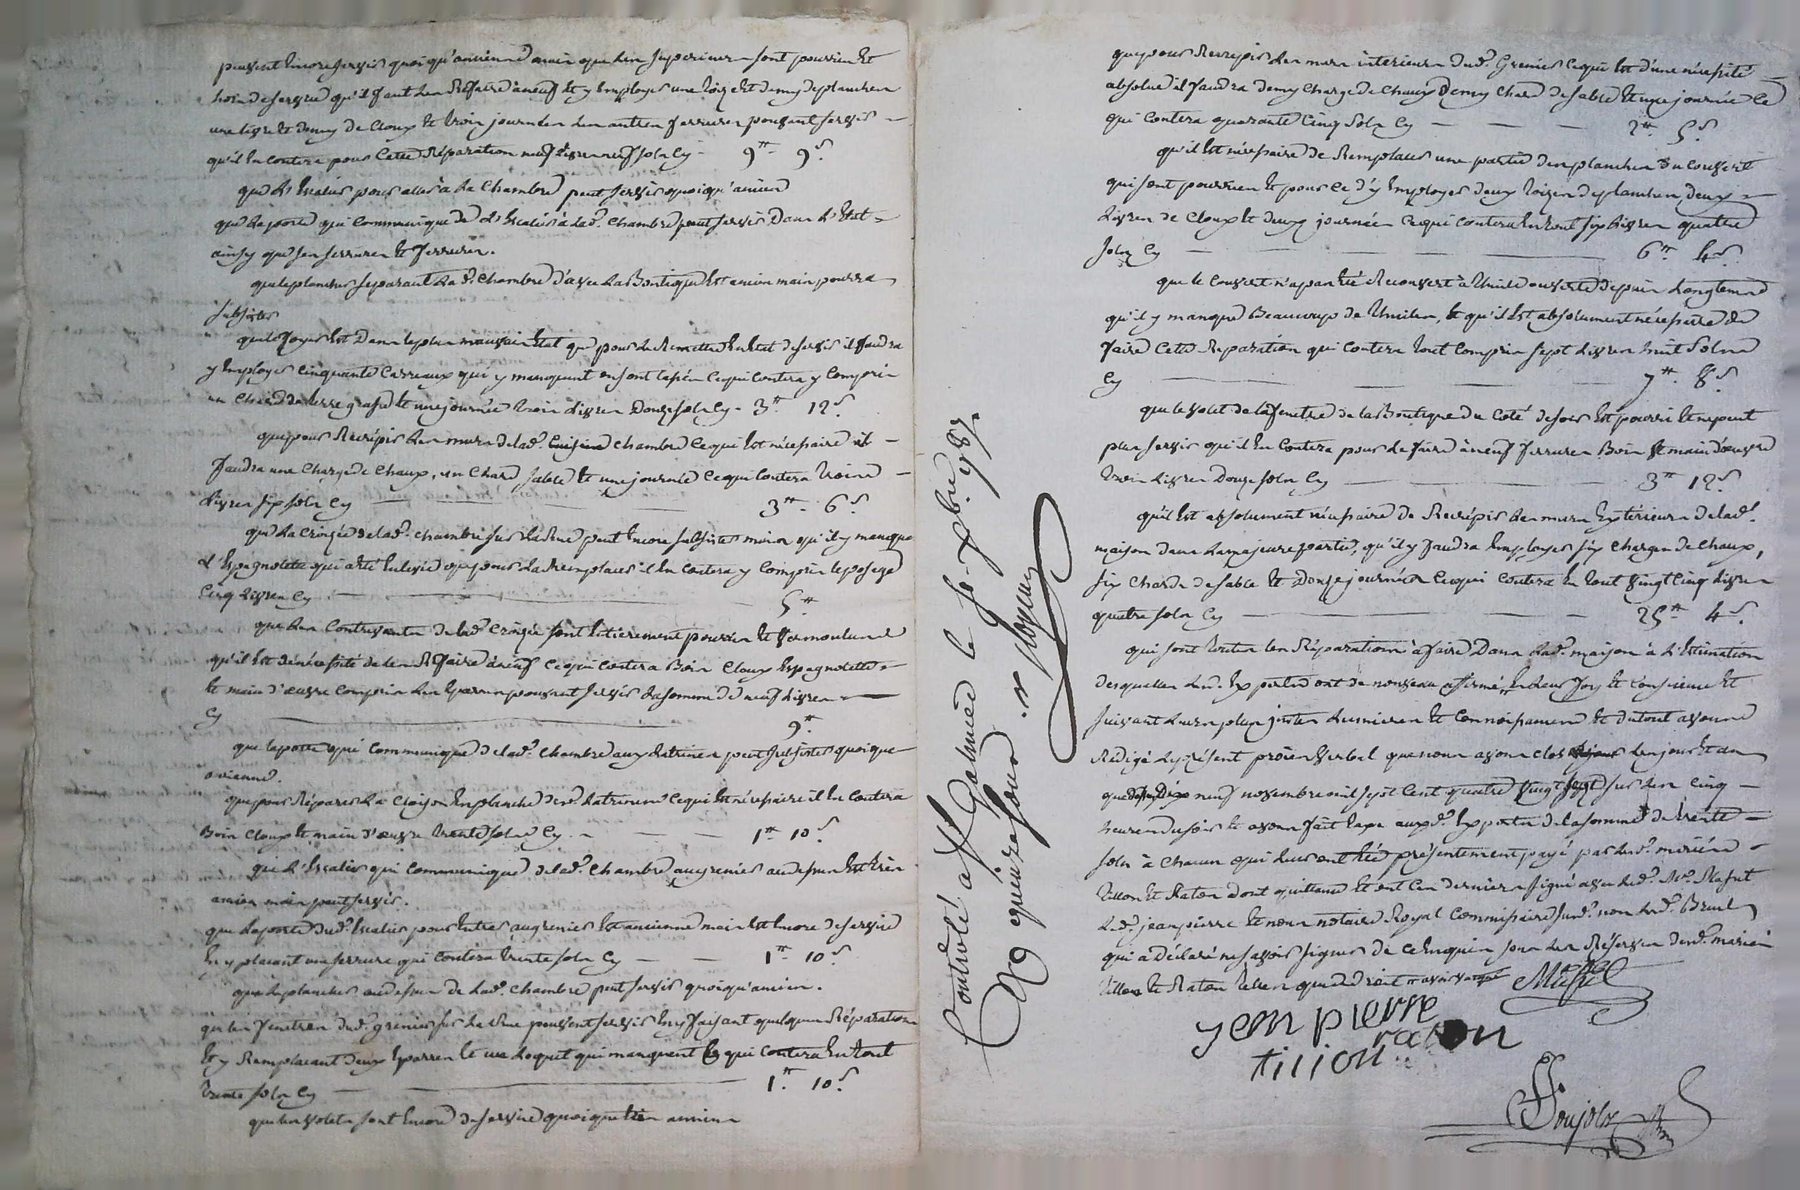 peuvent encore servir quoi qu'ancienne mais que les superieures sont pourries et
hors de service qu'il faut les Refaire à neuf et y employer une toize et demy de planches
une livre et demy de cloux et trois journées les autres ferrures pouvant servir
qu'il en coutera pour cette Réparation neuf livres neuf sols cy - 9 ₶ 9 s.
que l'Escalier pour aller à la chambre peut servir quoi qu'ancien
que la porte qui communique de l'Escalier à lad. chambre peut servir dans l'Etat
ainsy que ses serrures et ferrures.
que le plancher separant lad. chambre d'avec la Boutique est ancien mais pourra
subsister
que le foyer est dans le plus mauvais état que pour le Remettre en Etat de servir il faudra
y employer cinquante carreaux qui y manquent ou sont cassés ce qui coutera y compris
un chard de terre grasse et une journée trois livres douze sols cy - 3 ₶ 12 s.
que pour Recrépir les murs de lad. cuisine chambre ce qui est nécessaire il
faudra une charge de chaux, un chard sable et une journée ce qui coutera trois
livres six sols cy 3 ₶ 6 s.
que la croizée de lad. chambre sur la Rue peut encore subsister moins qu'il y manque
l'Espagnolette qui a été enlevée que pour la Remplacer il en coutera y compris le posage
cinq livres cy 5 ₶
que les contrevents de lad. croizée sont entierement pourris et vermoulus
qu'il est de nécessité de les Refaire à neuf ce qui coutera Bois cloux Espagnolette
et main d'œuvre compris les Eparres pouvant servir la somme de neuf livres
cy 9 ₶
que la porte qui communique de lad. chambre aux latrines peut subsister quoique
ancienne.
que pour Réparer la cloison en planche desd. latrines ce qui est nécessaire il en coutera
Bois cloux et main d'œuvre trente sols cy 1 ₶ 10 s.
que l'Escalier qui communique de lad. chambre au grenier au dessus est très
ancien mais peut servir.
que la porte dud. Escalier pour entrer au grenier est ancienne mais est encore de service
en y placant une serrure qui coutera trente sols cy 1 ₶ 10 s.
que le plancher au dessus de lad. chambre peut servir quoi qu'ancien.
que les fenetres dud. grenier sur la Rue peuvent servir en y faisant quelques Réparations
et y Remplacant deux Eparres et un Loquet qui manquent ce qui coutera en tout
trente sols cy 1 ₶ 10 s.
que les volets sont encore de service quoique très anciens
que pour Recrépir les murs interieurs dud. Grenier ce qui est d'une nécessité
absolue il faudra demy charge de chaux demy chard de sable et une journée ce
qui coutera quarante cinq sols cy 2 ₶ 5 s.
qu'il est nécessaire de Remplacer une partie des planches du couvert
qui sont pourries et pour ce d'y employer deux toizes de planches deux
livres de cloux et deux journées ce qui coutera en tout six livres quatre
sols cy 6 ₶ 4 s.
que le couvert n'a pas été Recouvert à thuile ouverte depuis longtems
qu'il y manque Beaucoup de thuiles, et qu'il est absolument nécessaire de
faire cette Reparation qui coutera tout compris sept livres huit sols
cy 7 ₶ 8 s.
que le volet de la fenetre de la Boutique du coté de soir est pourri et ne peut
plus servir qu'il en coutera pour le faire à neuf ferrures Bois et main d'œuvre
trois livres douze sols cy 3 ₶ 12 s.
qu'il est absolument nécessaire de Recrépir les murs extérieurs de lad.
maison dans la majeure partie, qu'il y faudra employer six charges de chaux,
six chards de sable et douze journées ce qui coutera en tout vingt cinq livres
quatre sols cy 25 ₶ 4 s.
qui sont toutes les Réparations à faire dans lad. maison à l'Estimation
desquelles lesd. Experts ont de nouveau affirmé en leur foy et conscience et
suivant leurs plus justes lumieres et connoissances et du tout avons
Rédigé le présent procès verbal que nous avons clos les jour et an
que dessus neuf novembre mil sept cent quatre vingt sept sur les cinq
heures du soir et avons fait taxe auxd. Experts de la somme de trente
sols à chacun qui leur ont été présentement payé par lesd. mariés
tillon et Raton dont quittance et ont ces derniers signé avec led. Me. Masset
led. jean pierre et nous notaire Royal commissaire susd. non led. Brul
qui a déclaré ne savoir signer de ce Enquis sous les Réserves desd. mariés
tillon et Raton telles que de droit
Masset
jean pierre
raton
tillon
Poujolx
Controlé a St Galmier le 9bre 1787
Rg quinze sous